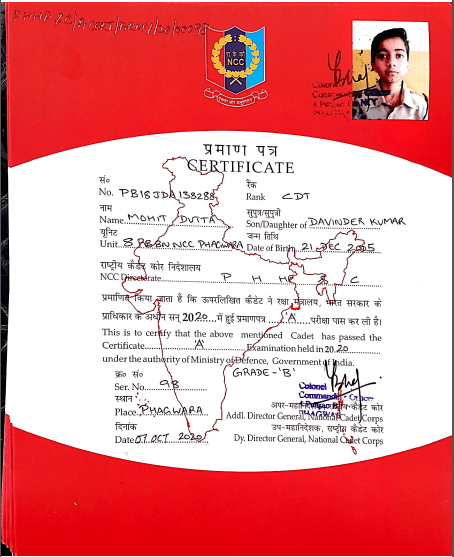 रा.कै.को
NCC
एकता और अनुशासन
प्रमाण पत्र
CERTIFICATE
सं०
No. PB18JDA138288
रैंक
Rank CDT
नाम
Name. MOHIT DUTTA
सुपुत्र/सुपुत्री
Son/Daughter of DAVINDER KUMAR
यूनिट
Unit. 8 PB BN NCC PHAGWARA
जन्म तिथि
Date of Birth 21 DEC 2005
राष्ट्रीय कैडेट कोर निदेशालय
NCC Directorate P H HP & C
प्रमाणित किया जाता है कि ऊपरलिखित कैडेट ने रक्षा मंत्रालय, भारत सरकार के
प्राधिकार के अधीन सन् 2020 ...में हुई प्रमाणपत्र ....'A'.....परीक्षा पास कर ली है।
This is to certify that the above mentioned Cadet has passed the
Certificate. 'A' Examination held in 2020
under the authority of Ministry of Defence, Government of India.
GRADE-'B'
क्र० सं०
Ser. No. 98
स्थान
Place. PHAGWARA
दिनांक
Date 07 OCT 2020
Colonel
अपर-महानिदेशक, राष्ट्रीय कैडेट कोर
Addl. Director General, National Cadet Corps
उप-महानिदेशक, राष्ट्रीय कैडेट कोर
Dy. Director General, National Cadet Corps